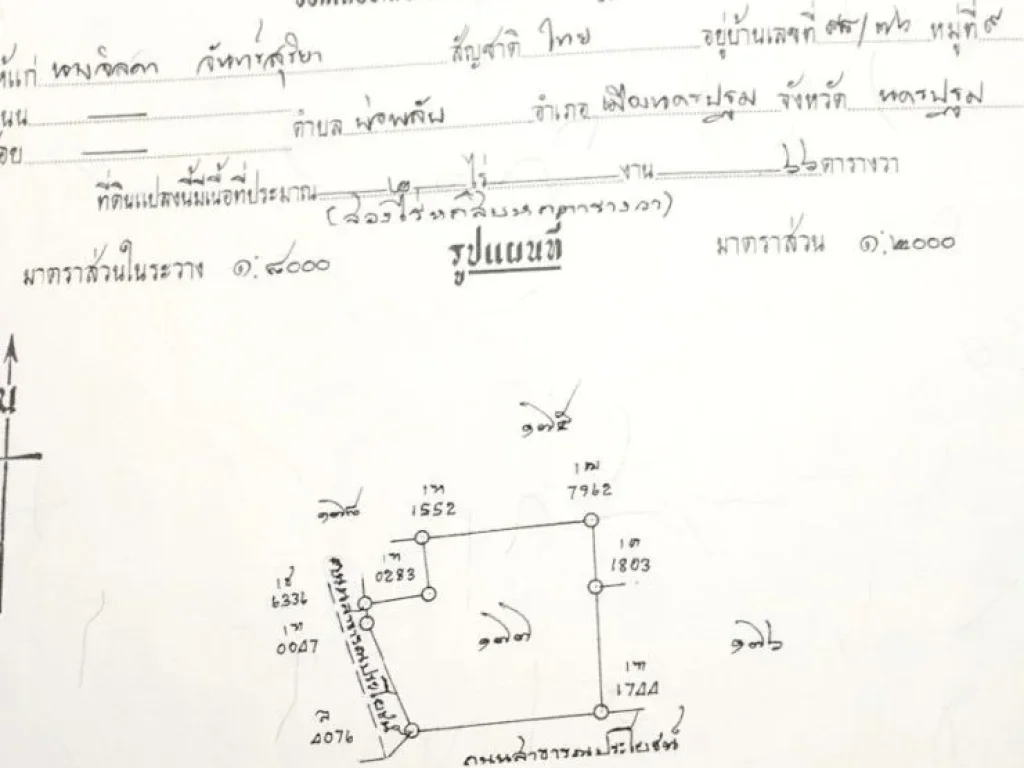 ให้แก่ นางจิลดา จันทร์สุริยา สัญชาติ ไทย อยู่บ้านเลขที่ ๕๕/๗๖ หมู่ที่ ๙
ตำบล พ่อพลับ อำเภอ เมืองนครปฐม จังหวัด นครปฐม
ที่ดินแปลงนี้มีเนื้อที่ประมาณ ๒ ไร่ งาน ๖๖ ตารางวา
(สองไร่หกสิบหกตารางวา)
มาตราส่วนในระวาง ๑:๔๐๐๐ รูปแผนที่ มาตราส่วน ๑:๒๐๐๐
น
๑๗๕
๑ฒ
7962
๑ท
1552
๑๗๘
๑ท
0283
๑ต
1803
6336
๑ท
0047
ถนนสาธารณประโยชน์
๑๗๗
๑๗๖
๑ท
1744
4076
ถนนสาธารณประโยชน์